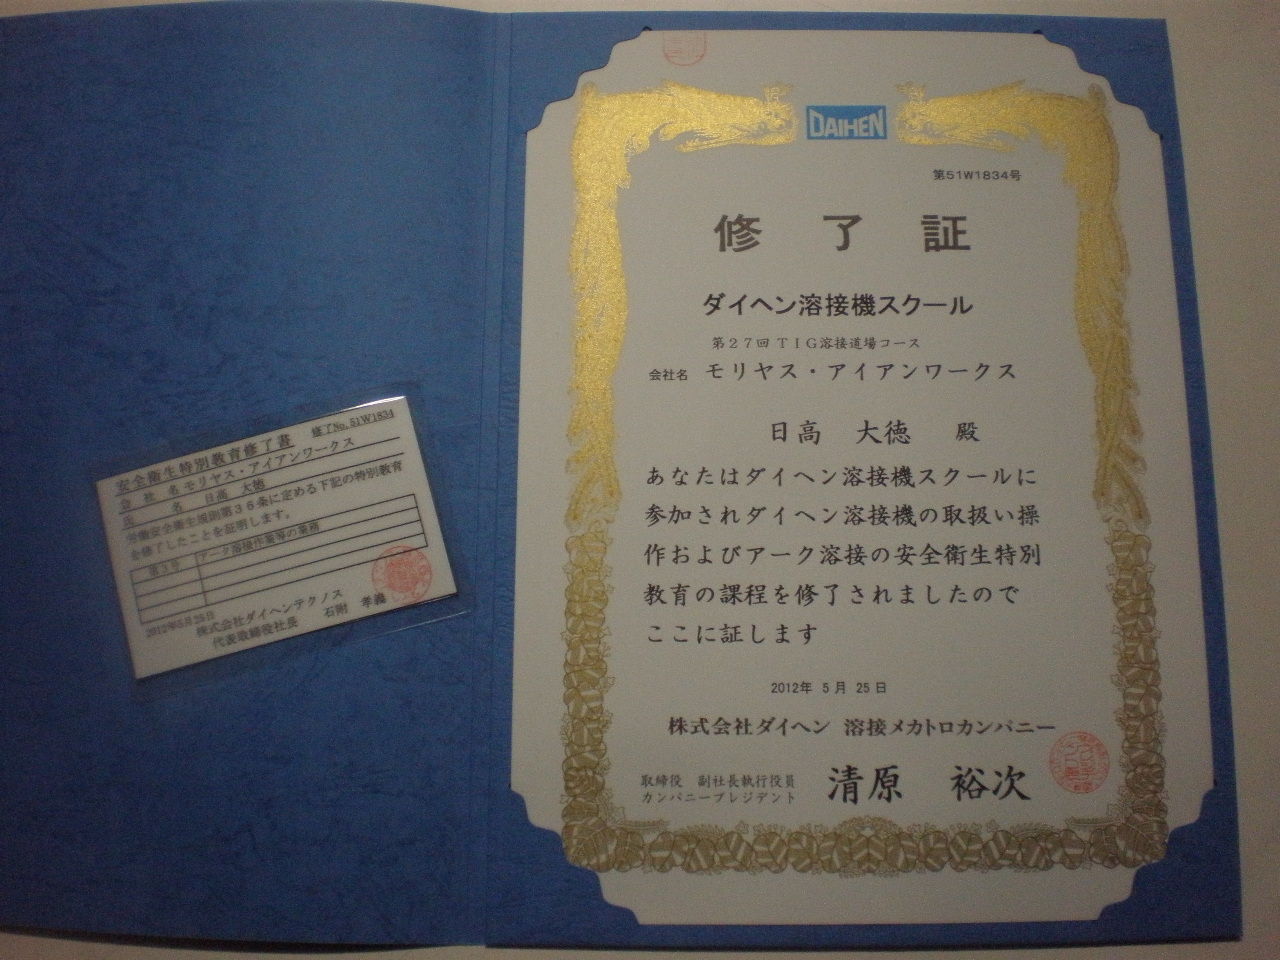 安全衛生特別教育修了書 修了No.51W1834
会社名 モリヤス・アイアンワークス
氏名 日高 大徳
労働安全衛生規則第36条に定める下記の特別教育
を修了したことを証明します。
第3号 アーク溶接作業等の業務
2012年5月25日
株式会社ダイヘンテクノス
代表取締役社長 石附 孝義
DAIHEN
第51W1834号
修了証
ダイヘン溶接機スクール
第27回 TIG溶接道場コース
会社名 モリヤス・アイアンワークス
日高 大徳 殿
あなたはダイヘン溶接機スクールに
参加されダイヘン溶接機の取扱い操
作およびアーク溶接の安全衛生特別
教育の課程を修了されましたので
ここに証します
2012年 5月 25日
株式会社ダイヘン 溶接メカトロカンパニー
取締役 副社長執行役員
カンパニープレジデント
清原 裕次